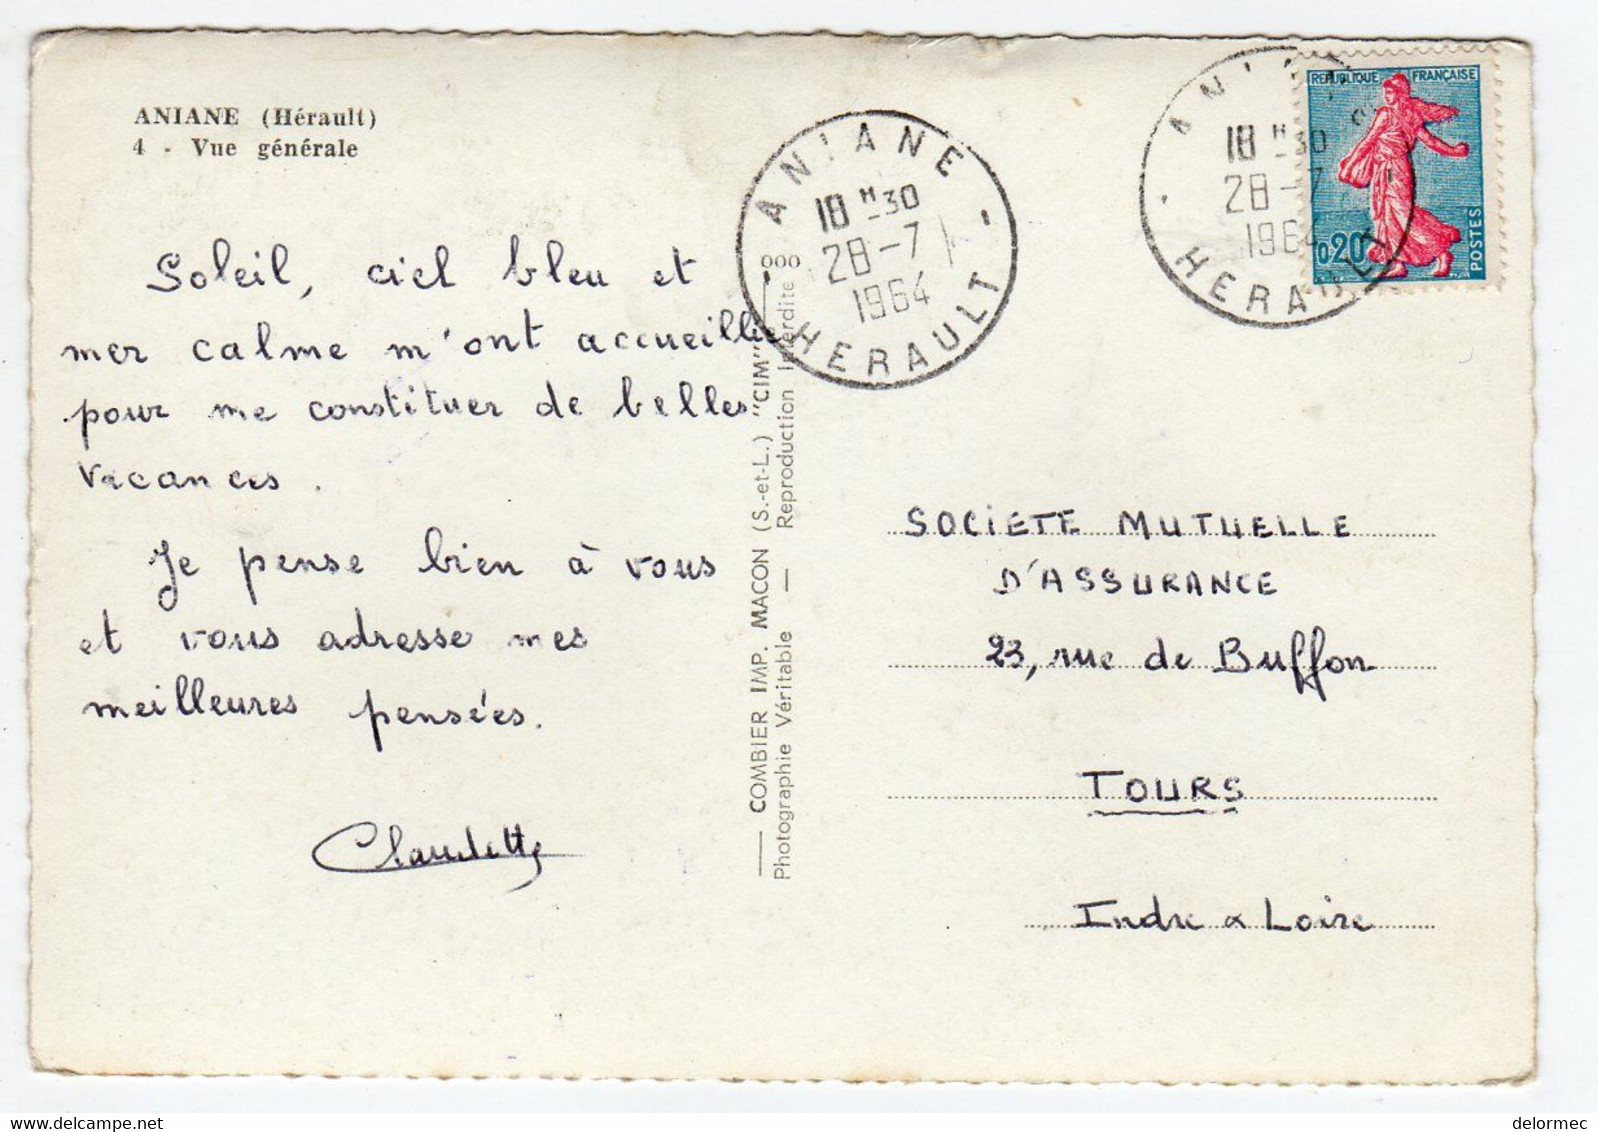 ANIANE (Hérault)
4 - Vue générale
Soleil, ciel bleu et
mer calme m'ont accueillie
pour me constituer de belles
vacances.
Je pense bien à vous
et vous adresse mes
meilleures pensées.
Claudette
COMBIER IMP. MACON (S.-et-L.) "CIM"
Photographie Véritable — Reproduction Interdite
ANIANE
18 H 30
28-7
1964
HERAULT
ANIANE
18 H 30
28-7
1964
HERAULT
REPUBLIQUE FRANÇAISE
0,20
POSTES
SOCIETE MUTUELLE
D'ASSURANCE
23, rue de Buffon
TOURS
Indre & Loire
delormec